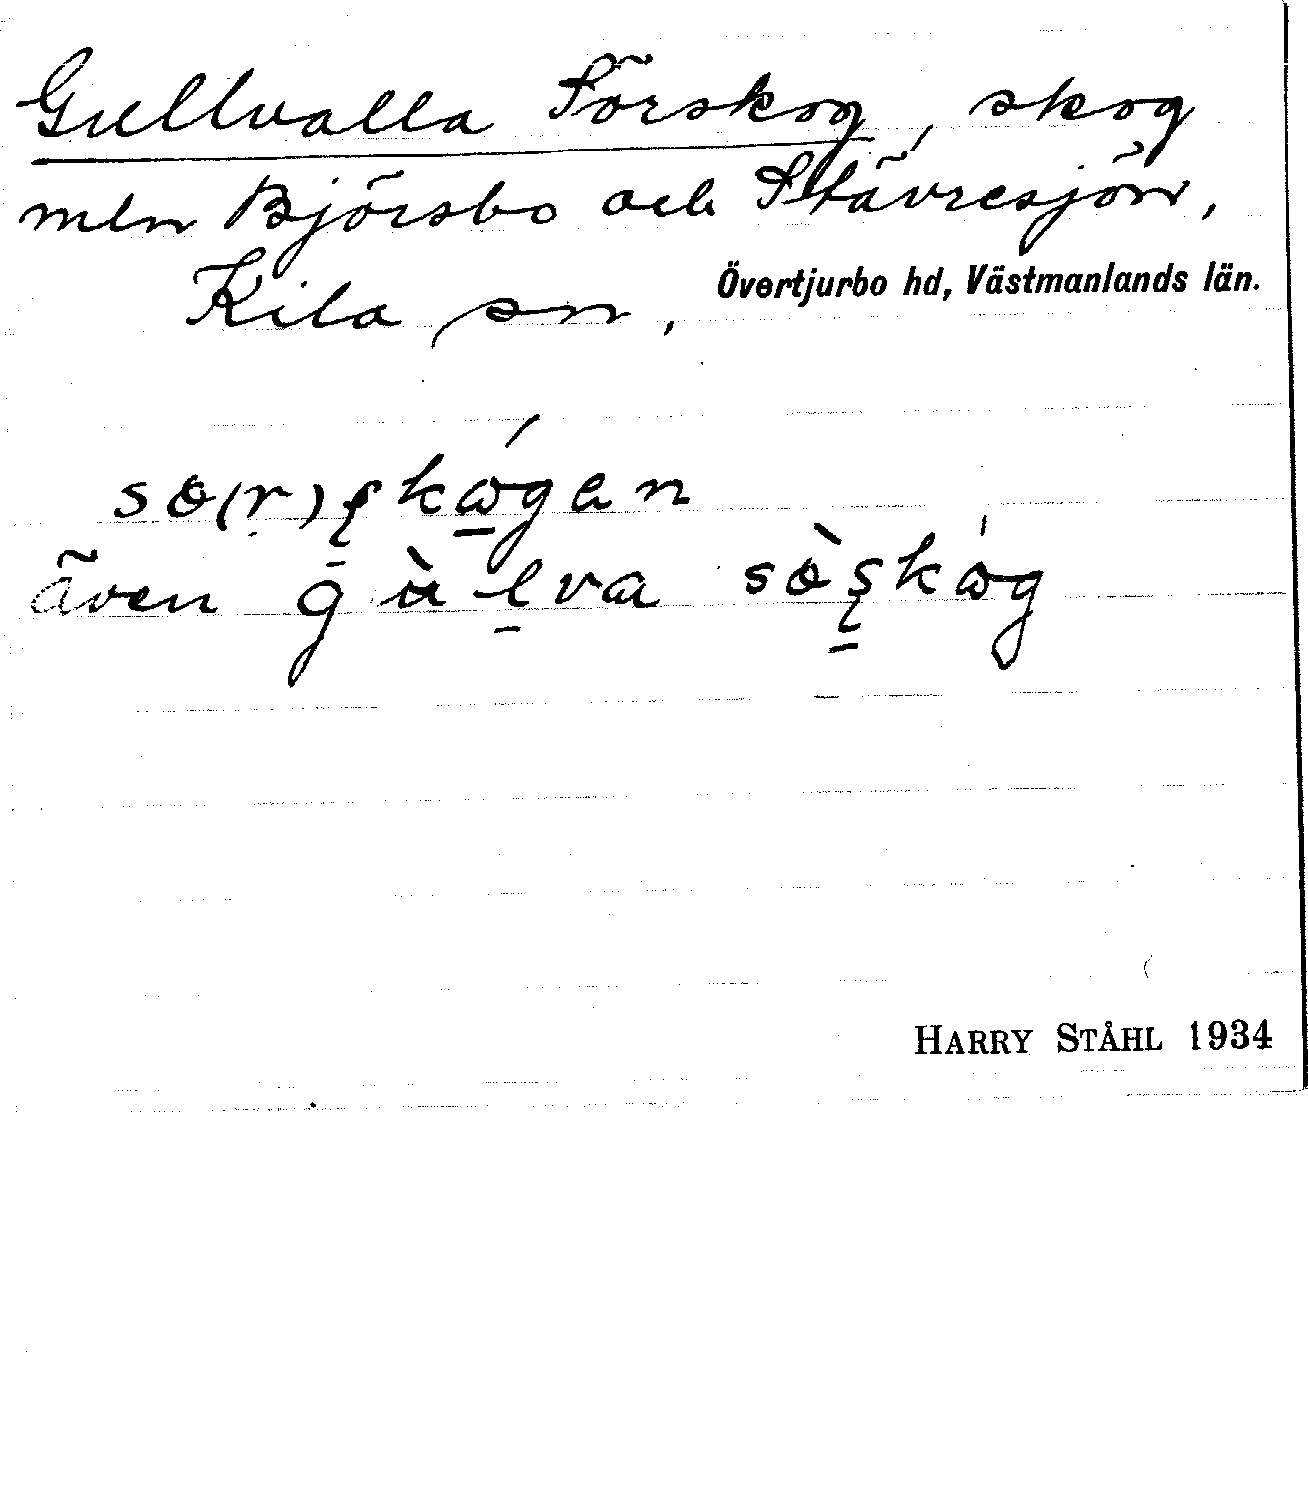 Gullvalla Sörskog, skog
mln Björsbo och Stävresjön,
Kila sn, Övertjurbo hd, Västmanlands län.
sɵ(r)ʂkωgen
även gùlva sɵ̀ʂkωg
HARRY STÅHL 1934